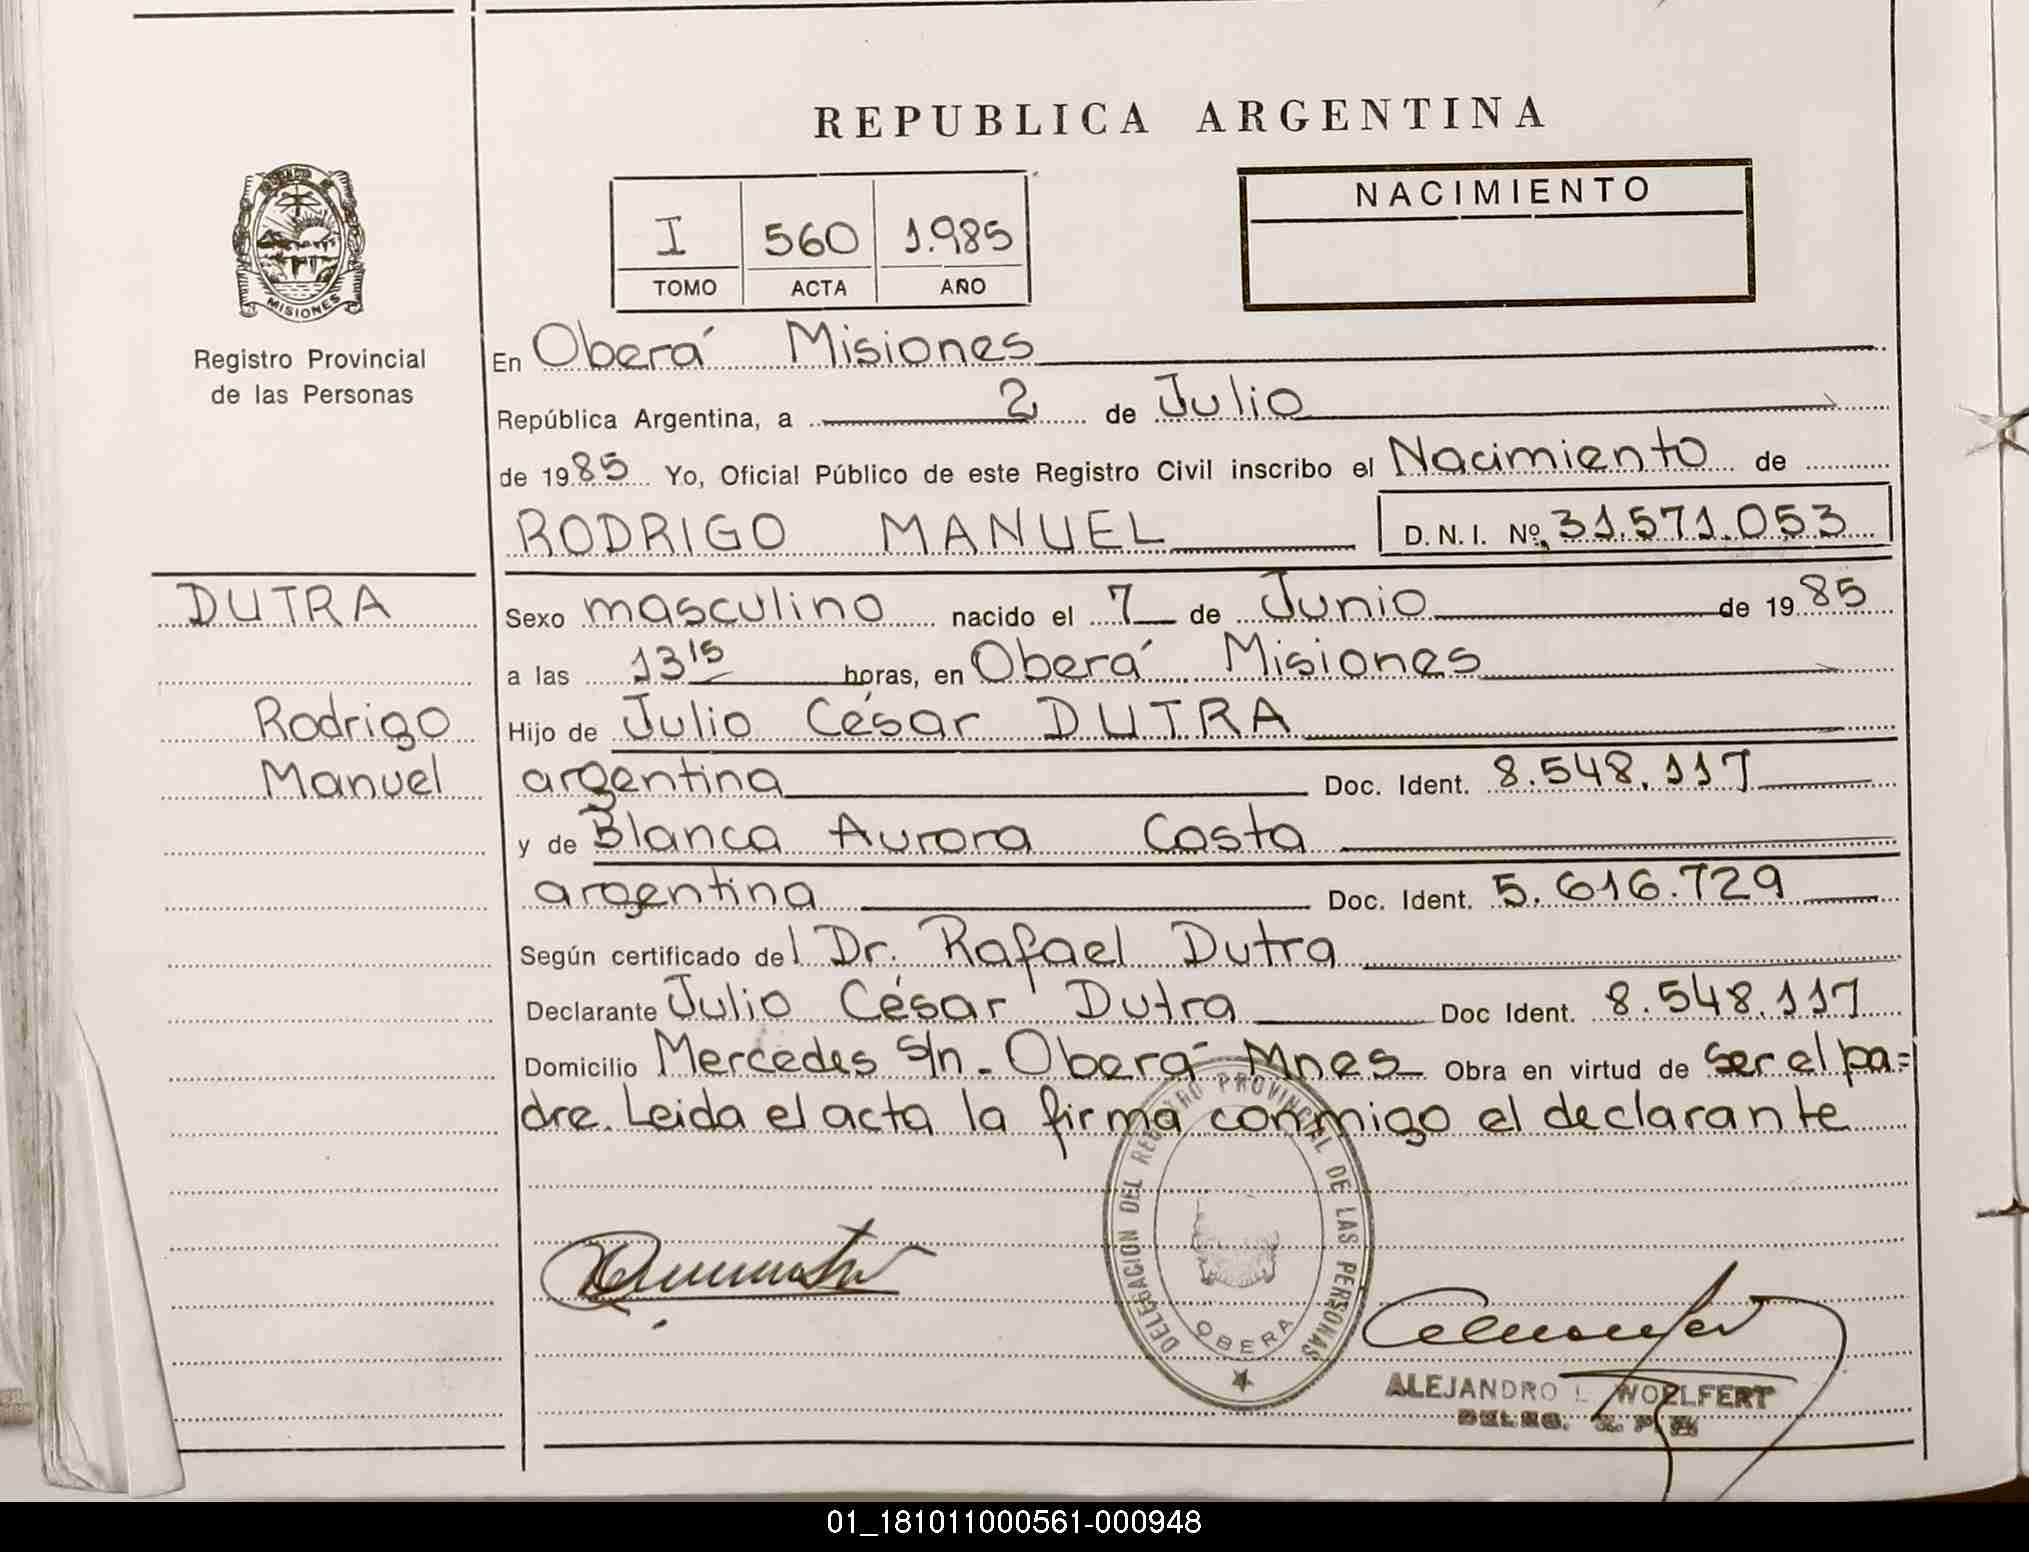 REPUBLICA ARGENTINA
I 560 1.985
TOMO ACTA AÑO
NACIMIENTO
MISIONES
Registro Provincial
de las Personas
En Oberá Misiones
República Argentina, a 2 de Julio
de 1985 Yo, Oficial Público de este Registro Civil inscribo el Nacimiento de
RODRIGO MANUEL D.N.I. Nº 31.571.053
DUTRA
Rodrigo
Manuel
Sexo masculino nacido el 7 de Junio de 1985
a las 13 15 horas, en Oberá Misiones
Hijo de Julio César DUTRA
argentina Doc. Ident. 8.548.117
y de Blanca Aurora Costa
argentina Doc. Ident. 5.616.729
Según certificado del Dr. Rafael Dutra
Declarante Julio César Dutra Doc Ident. 8.548.117
Domicilio Mercedes s/n - Oberá Mnes Obra en virtud de ser el pa=
dre. Leida el acta la firma conmigo el declarante
DELEGACION DEL REGISTRO PROVINCIAL DE LAS PERSONAS
OBERA
ALEJANDRO L. WOELFERT
01_181011000561-000948